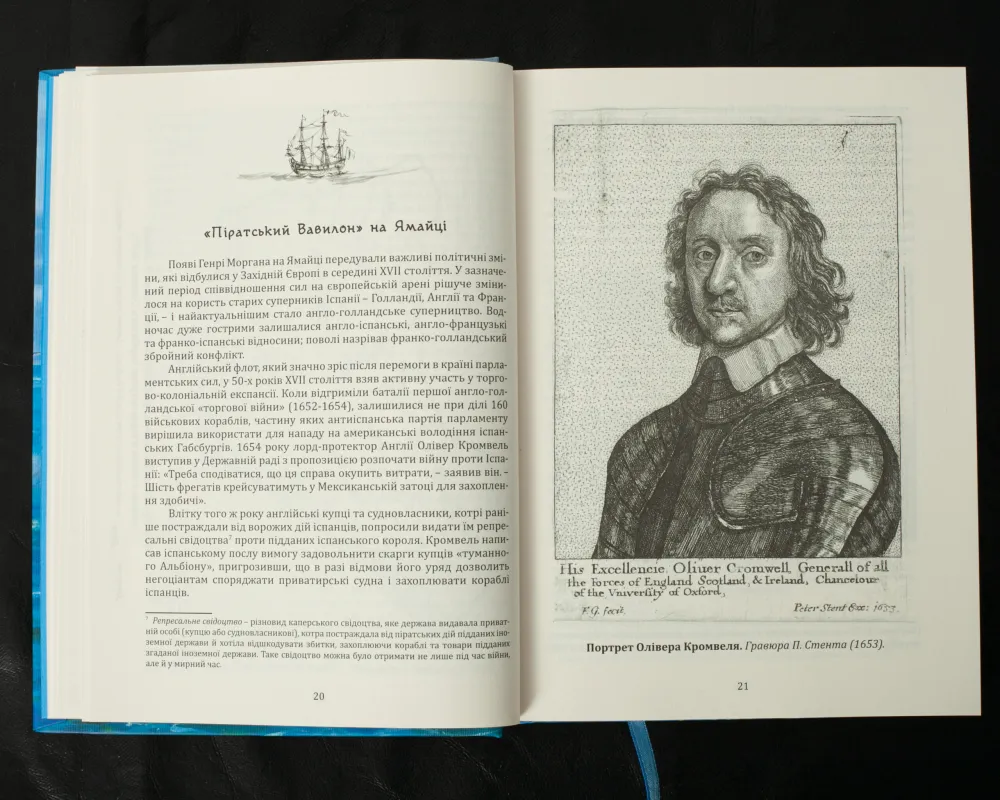 «Піратський Вавилон» на Ямайці
Появі Генрі Моргана на Ямайці передували важливі політичні змі-
ни, які відбулися у Західній Європі в середині XVII століття. У зазначе-
ний період співвідношення сил на європейській арені рішуче зміни-
лося на користь старих суперників Іспанії – Голландії, Англії та Фран-
ції, – і найактуальнішим стало англо-голландське суперництво. Вод-
ночас дуже гострими залишалися англо-іспанські, англо-французькі
та франко-іспанські відносини; поволі назрівав франко-голландський
збройний конфлікт.
Англійський флот, який значно зріс після перемоги в країні парла-
ментських сил, у 50-х років XVII століття взяв активну участь у торго-
во-колоніальній експансії. Коли відгриміли баталії першої англо-гол-
ландської «торгової війни» (1652-1654), залишилися не при ділі 160
військових кораблів, частину яких антиіспанська партія парламенту
вирішила використати для нападу на американські володіння іспан-
ських Габсбургів. 1654 року лорд-протектор Англії Олівер Кромвель
виступив у Державній раді з пропозицією розпочати війну проти Іспа-
нії: «Треба сподіватися, що ця справа окупить витрати, – заявив він. –
Шість фрегатів крейсуватимуть у Мексиканській затоці для захоплен-
ня здобичі».
Влітку того ж року англійські купці та судновласники, котрі рані-
ше постраждали від ворожих дій іспанців, попросили видати їм репре-
сальні свідоцтва⁷ проти підданих іспанського короля. Кромвель напи-
сав іспанському послу вимогу задовольнити скарги купців «туманно-
го Альбіону», пригрозивши, що в разі відмови його уряд дозволить
негоціантам споряджати приватирські судна і захоплювати кораблі
іспанців.
⁷ Репресальне свідоцтво – різновид каперського свідоцтва, яке держава видавала приват-
ній особі (купцю або судновласникові), котра постраждала від піратських дій підданих іно-
земної держави й хотіла відшкодувати збитки, захоплюючи кораблі та товари підданих
згаданої іноземної держави. Таке свідоцтво можна було отримати не лише під час війни,
але й у мирний час.
20
His Excellencie Oliuer Cromwell, Generall of all
the Forces of England Scotland, & Ireland, Chancelour
of the Vniversity of Oxford,
F G. fecit.
Peter Stent Exc: 1653
Портрет Олівера Кромвеля. Гравюра П. Стента (1653).
21